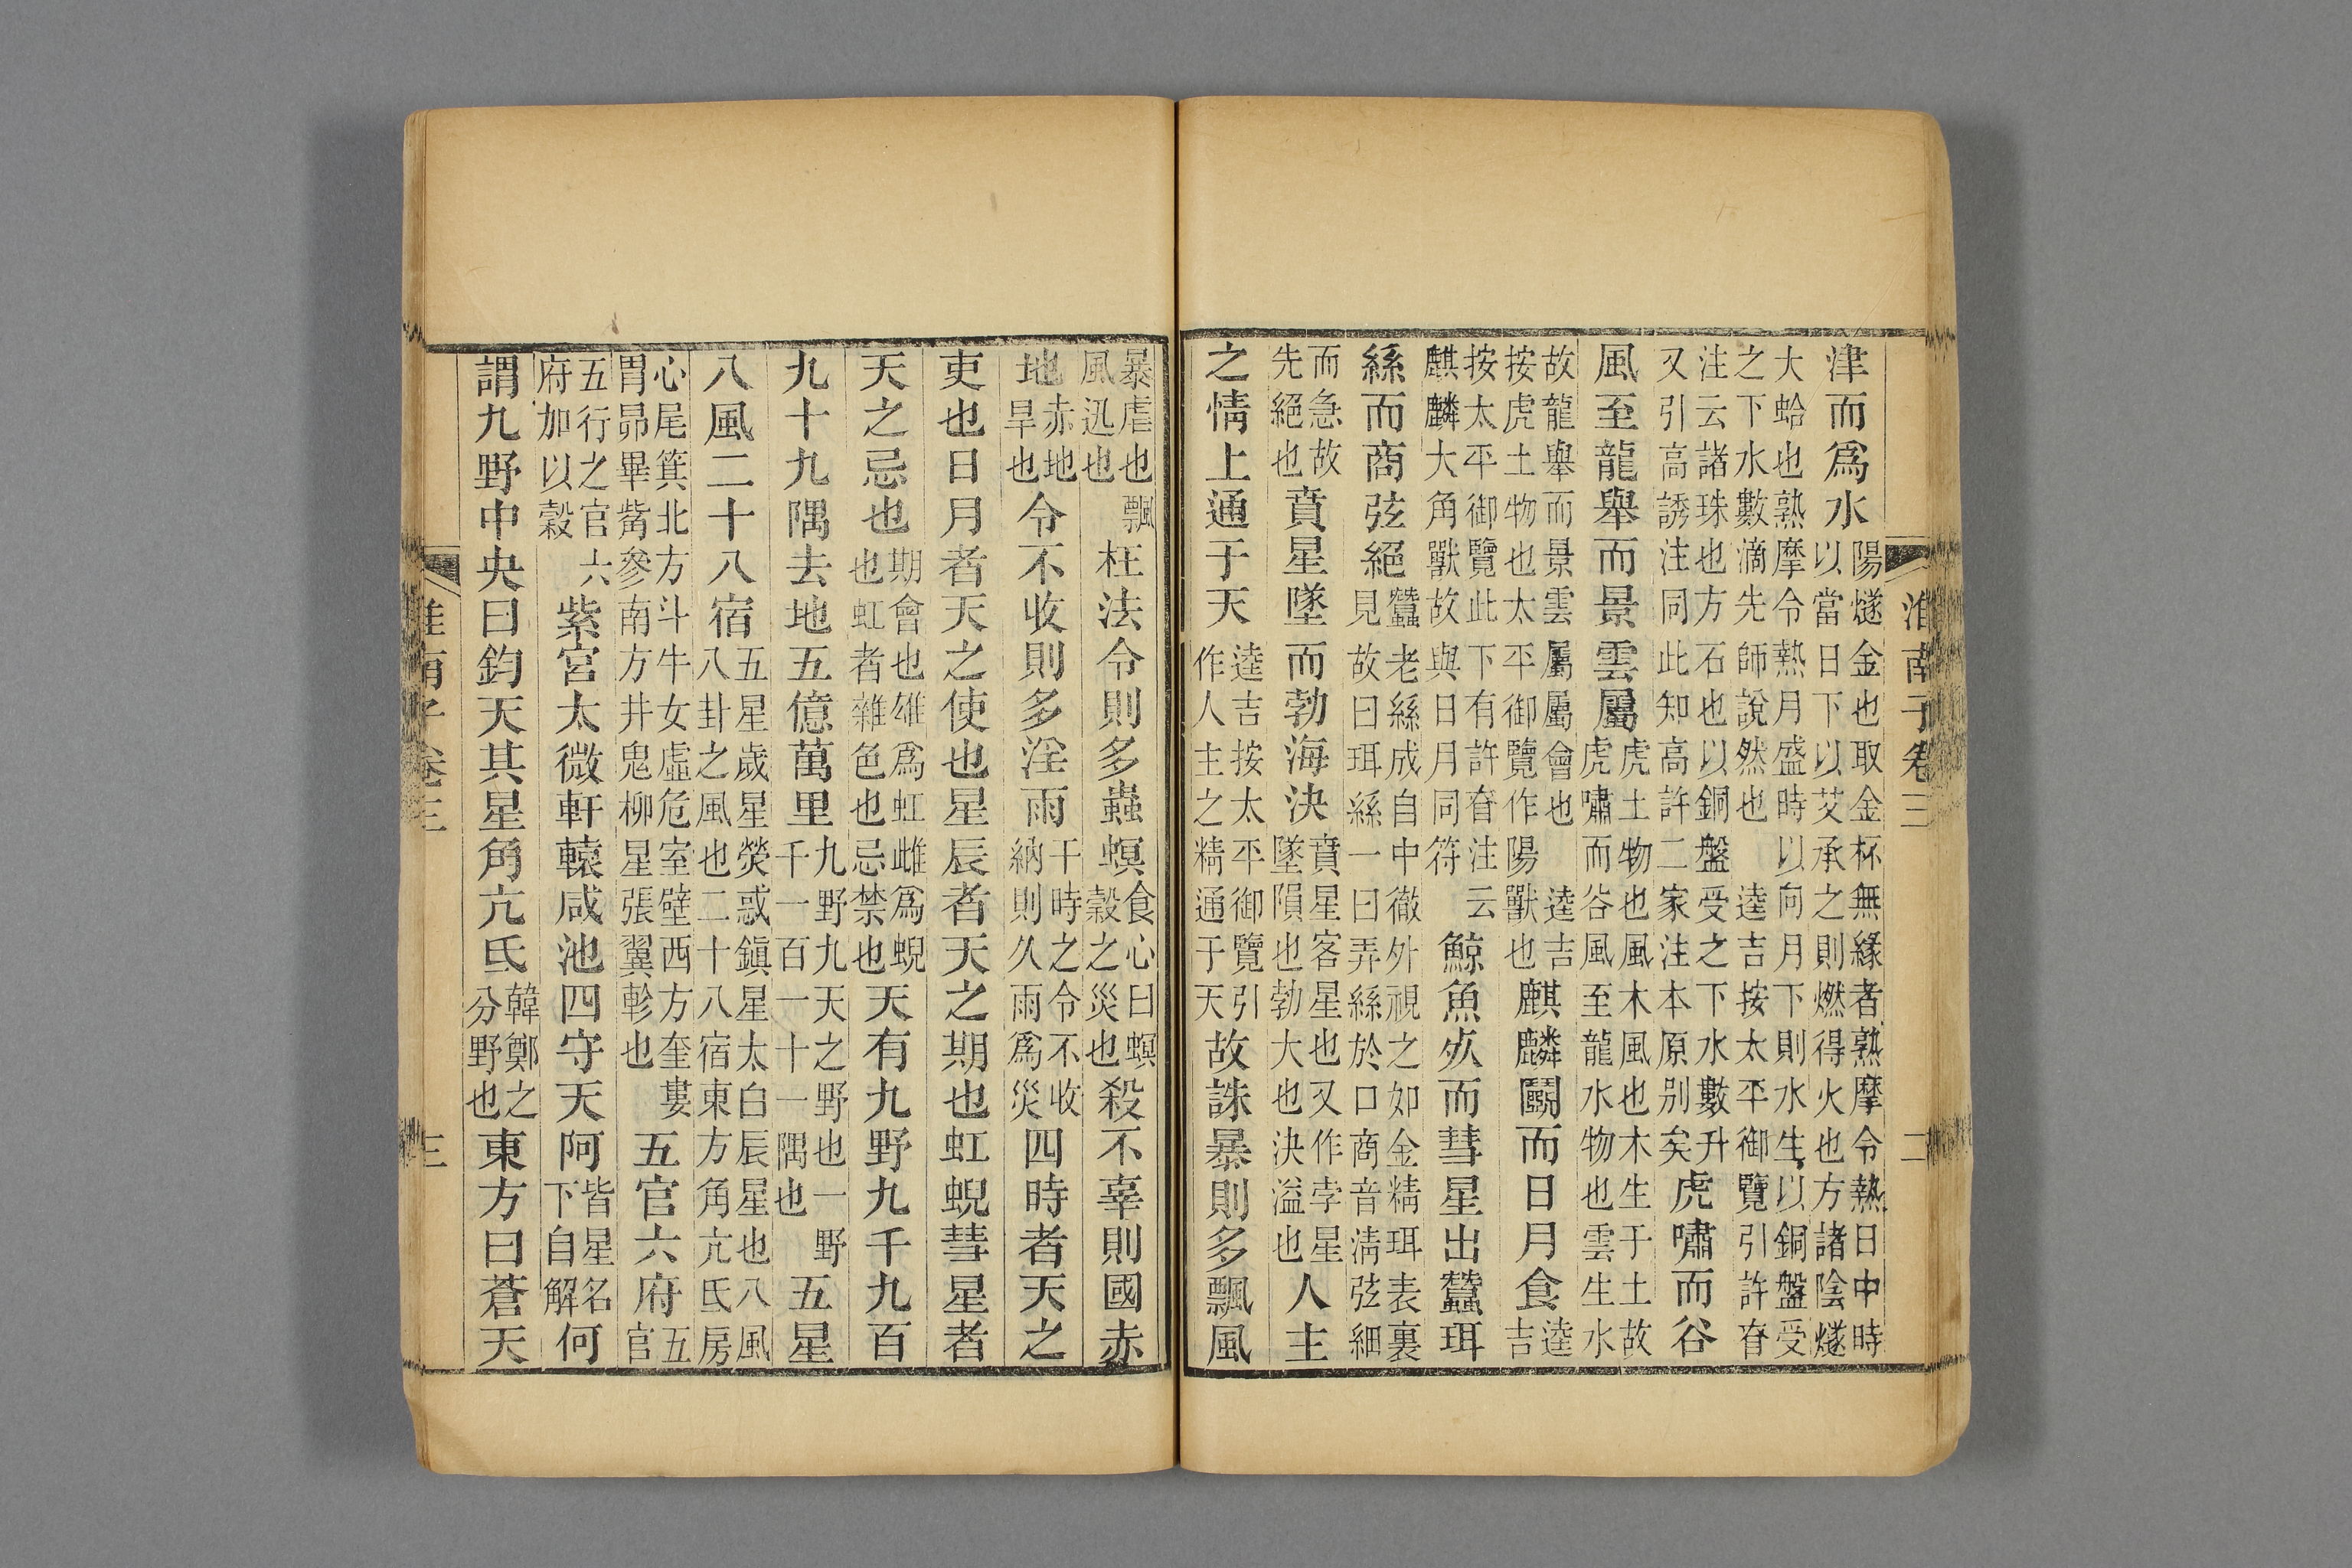 淮南子卷三 二
津而爲水陽燧金也取金杯無緣者熟摩令熱日中時以當日下以艾承之則燃得火也方諸陰燧
大蛤也熟摩令熱月盛時以向月下則水生以銅盤受之下水數滴先師說然也 逵吉按太平御覽引許眘
注云諸珠也方石也以銅盤受之下水數升又引高誘注同此知高許二家注本原別矣虎嘯而谷
風至龍舉而景雲屬虎土物也風木風也木生于土故虎嘯而谷風至龍水物也雲生水
故龍舉而景雲屬屬會也 逵吉按虎土物也太平御覽作陽獸也麒麟鬭而日月食逵吉
按太平御覽此下有許眘注云麒麟大角獸故與日月同符鯨魚死而彗星出蠶珥
絲而商弦絕蠶老絲成自中徹外視之如金精珥表裏見故曰珥絲一曰弄絲於口商音清弦細
而急故先絕也賁星墜而勃海決賁星客星也又作孛星墜隕也勃大也決溢也人主
之情上通于天逵吉按太平御覽引作人主之精通于天故誅暴則多飄風
暴虐也飄風迅也枉法令則多蟲螟食心曰螟穀之災也殺不辜則國赤
地赤地旱也令不收則多淫雨干時之令不收納則久雨爲災四時者天之
吏也日月者天之使也星辰者天之期也虹蜺彗星者
天之忌也期會也雄爲虹雌爲蜺也虹者雜色也忌禁也天有九野九千九百
九十九隅去地五億萬里九野九天之野也一野千一百一十一隅也五星
八風二十八宿五星歲星熒惑鎮星太白辰星也八風八卦之風也二十八宿東方角亢氐房
心尾箕北方斗牛女虛危室壁西方奎婁胃昴畢觜參南方井鬼柳星張翼軫也五官六府五官
五行之官六府加以穀紫宮太微軒轅咸池四守天阿皆星名下自解何
謂九野中央曰鈞天其星角亢氐韓鄭之分野也東方曰蒼天
淮南子卷三 三